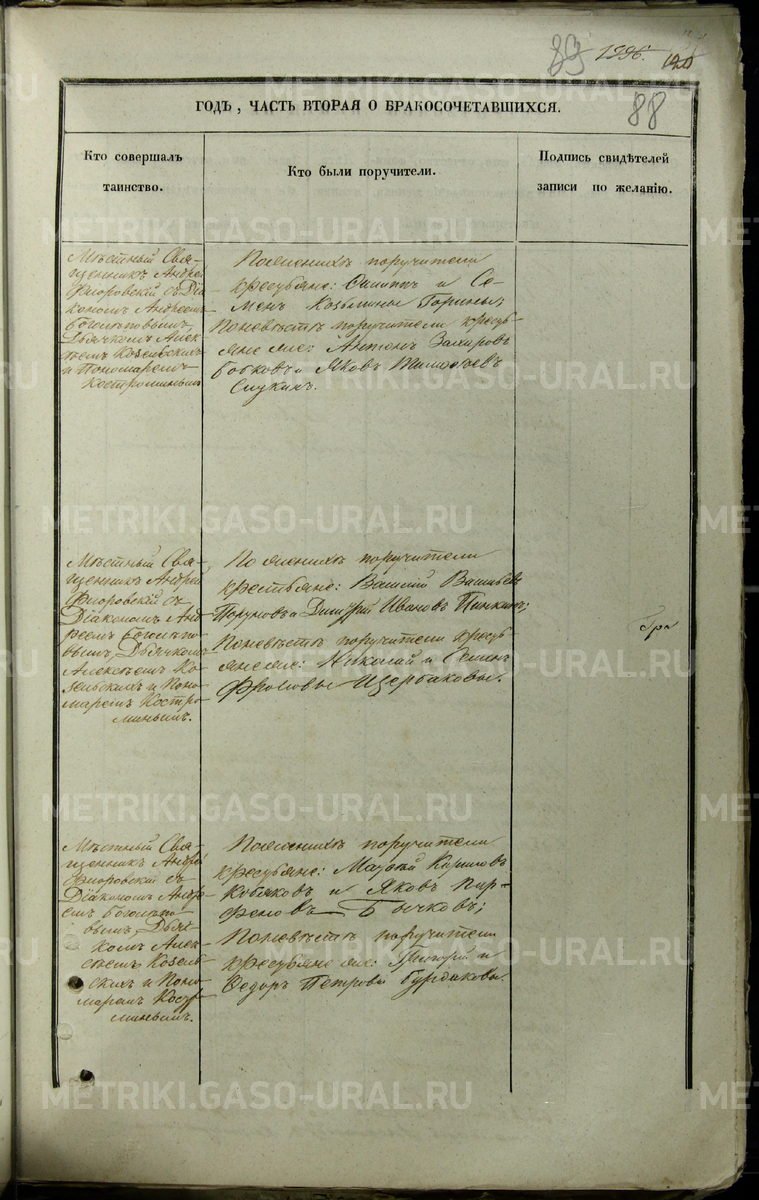 89 1296. 120
88
ГОДЪ, ЧАСТЬ ВТОРАЯ О БРАКОСОЧЕТАВШИХСЯ.
Кто совершалъ
таинство.
Кто были поручители.
Подпись свидѣтелей
записи по желанію.
Мѣстный Свя-
щенникъ Андрей
Флоровскій съ Діа-
кономъ Андреемъ
Боголѣповымъ,
Дьячкомъ Алек-
сѣемъ Козельскихъ
и Пономаремъ
Костроминымъ
По женихѣ поручители
крестьяне: Филиппъ и Се-
менъ Козьмины Горины;
По невѣстѣ поручители кресть-
яне же: Антонъ Захаровъ
и Яковъ Тимофеевъ
Мѣстный Свя-
щенникъ Андрей
Флоровскій съ
Діакономъ Анд-
реемъ Боголѣпо-
вымъ, Дьячкомъ
Алексѣемъ Ко-
зельскихъ и Поно-
маремъ Костро-
минымъ.
По женихѣ поручители
крестьяне: Василій Васильевъ
и Дмитрій Ивановъ Пинкинъ;
По невѣстѣ поручители кресть-
яне же: Николай и Семенъ
Фроловы Щербаковы.
Мѣстный Свя-
щенникъ Андрей
Флоровскій съ
Діакономъ Андре-
емъ Боголѣпо-
вымъ, Дьяч-
комъ Алек-
сѣемъ Козель-
скихъ и Поно-
маремъ Костро-
минымъ.
По женихѣ поручители
крестьяне: Матвѣй Кириловъ
Кобяковъ и Яковъ Пар-
феновъ Бычковъ;
По невѣстѣ поручители
крестьяне же: Григорій и
Федоръ Петровы Бурдаковы.
METRIKI.GASO-URAL.RU